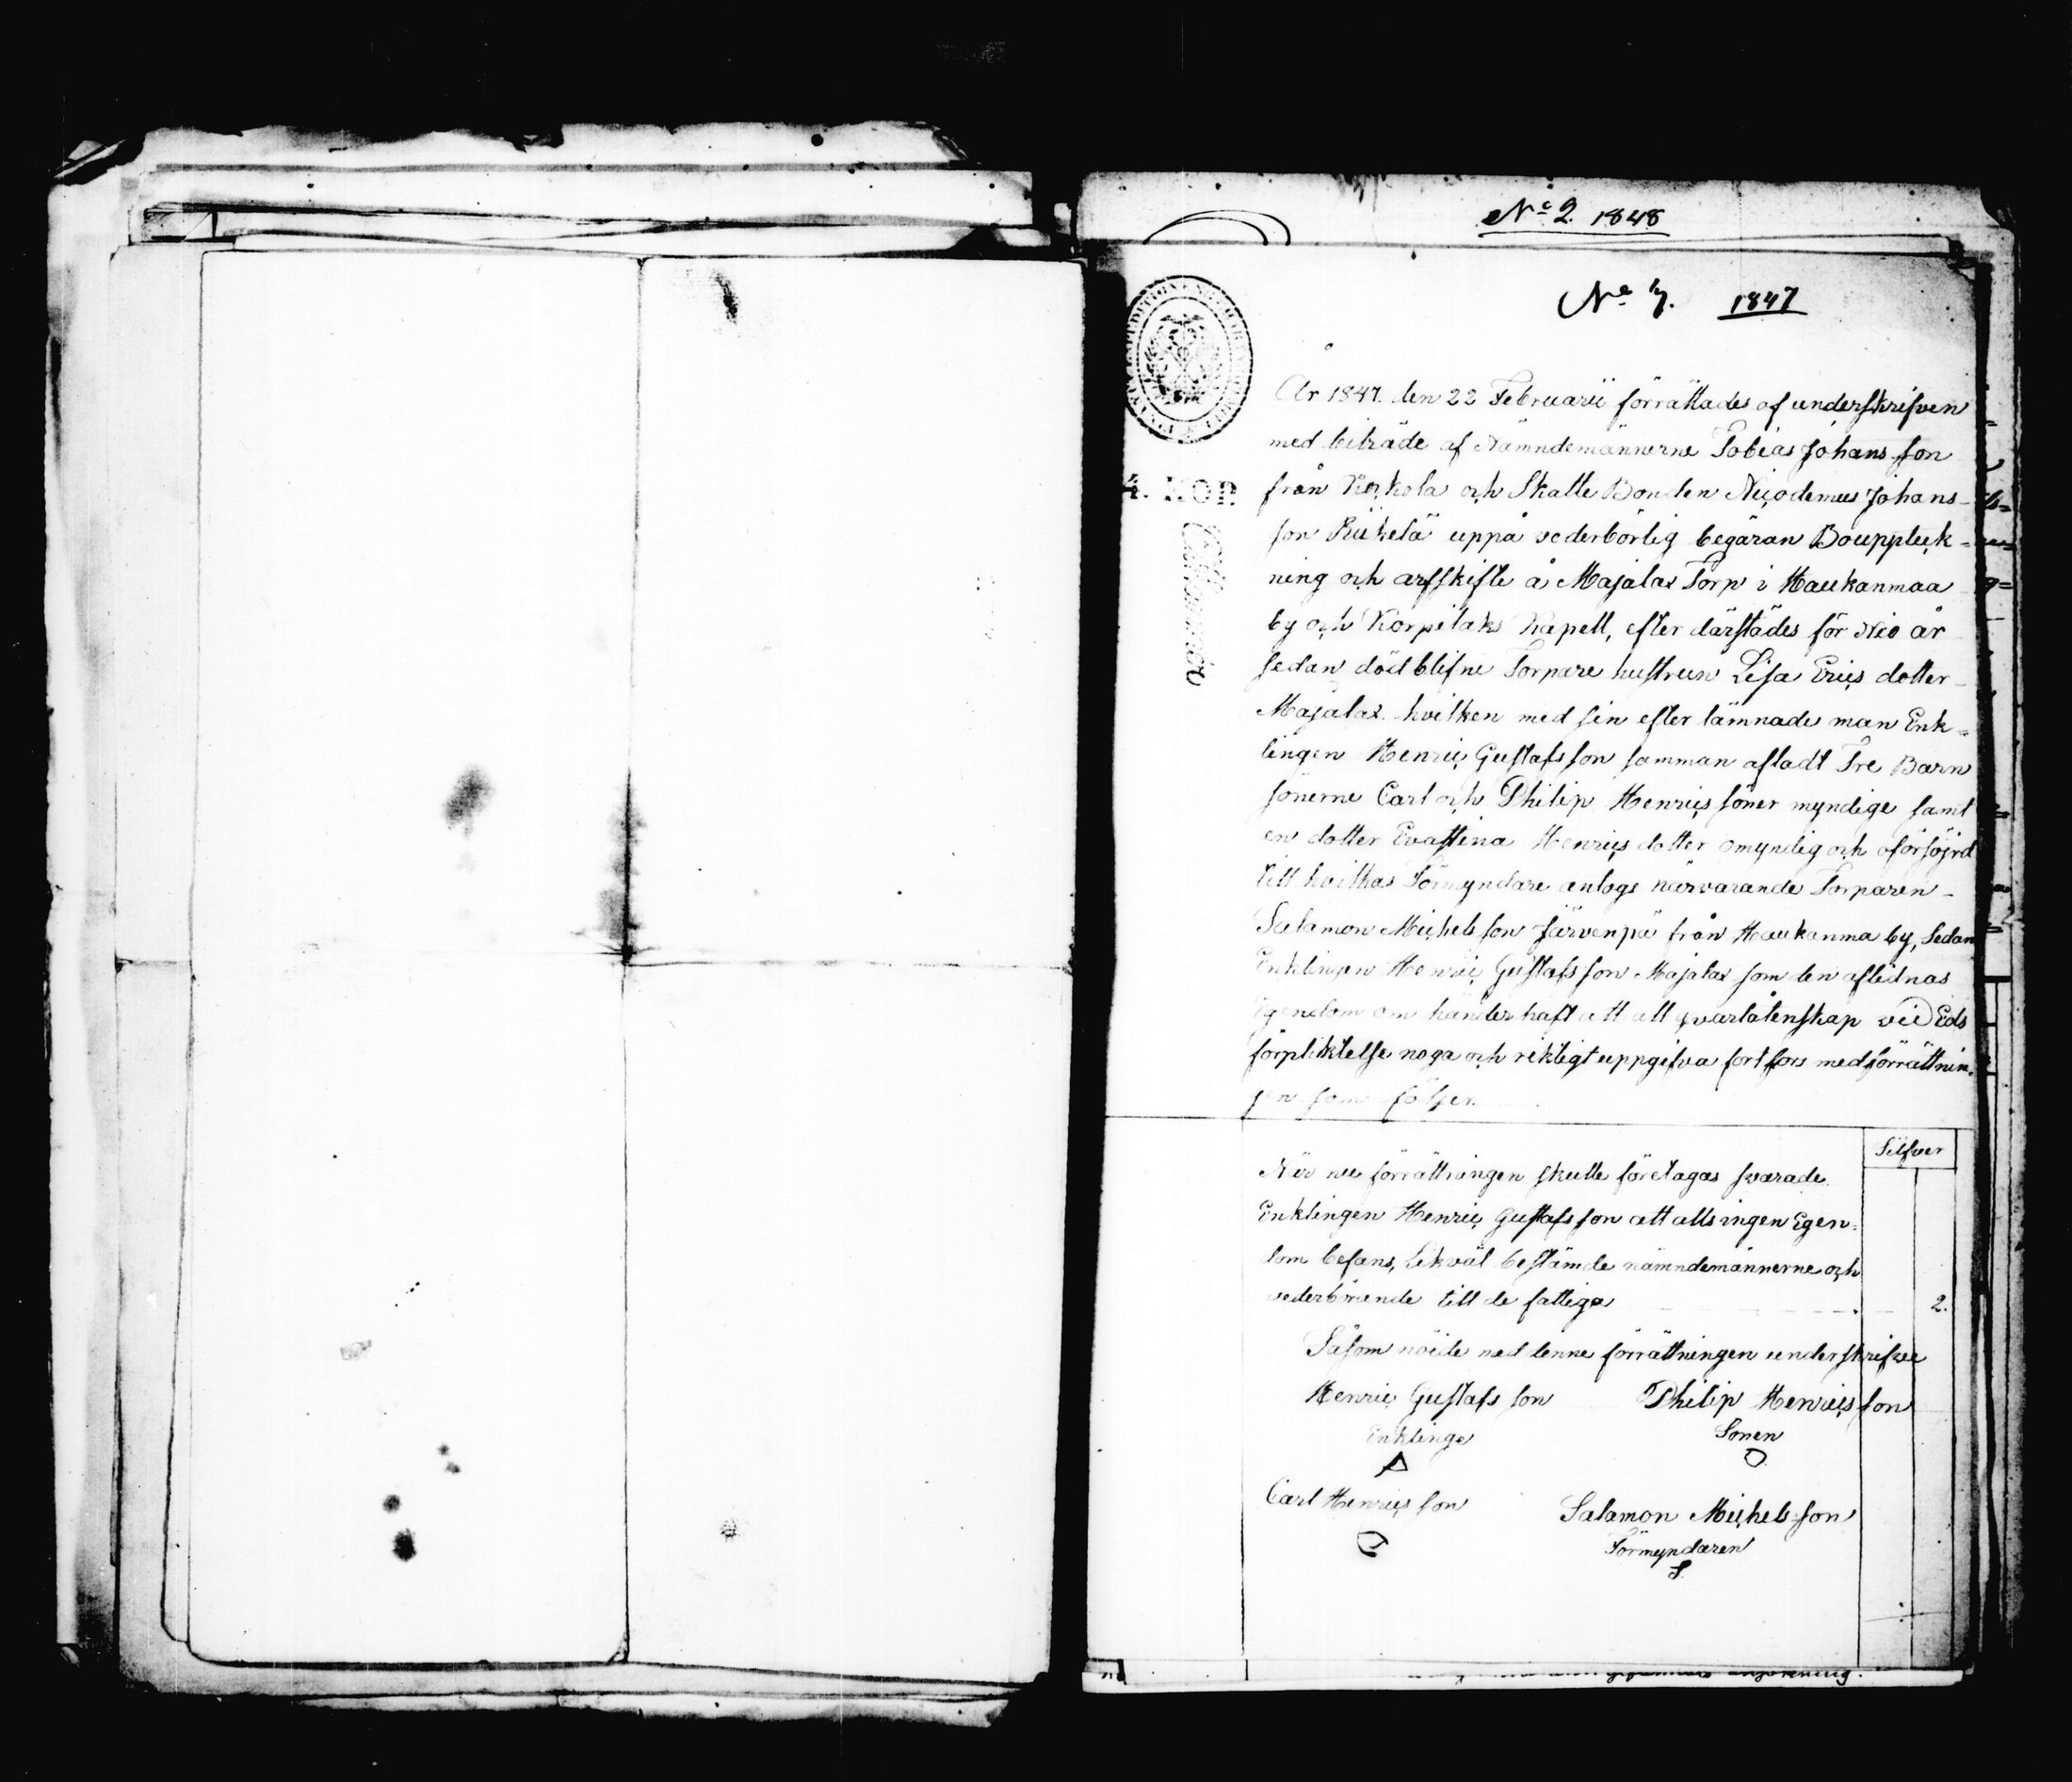 No 2. 1848
No 7. 1847
4. KOP.
År 1847. den 22 Februarii förrättades af underskrifven
med biträde af Nämndemännerne Tobias Johansson
från Korkola och Skatte Bonden Nicodemus Johans-
son Riihelä uppå vederbörlig begäran Bouppteck-
ning och arfskifte å Majalax Torp i Haukanmaa
by och Korpilaks Kapell, efter därstädes för Nio år
sedan död blifne Torpare hustrun Lisa Erics dotter
Majalax hvilken med sin efter lämnade man Enk-
lingen Henric Gustafsson samman afladt Tre Barn
sönerne Carl och Philip Henrics söner myndige samt
en dotter Evastina Henrics dotter omyndig och oförsöjrd
till hvilkas Förmyndare antogs närvarande Torparen
Salamon Michelsson Järvenpä från Haukanma by, Sedan
Enklingen Henric Gustafsson Majalax som den aflidnas
Egendom om händer haft att all qvarlåtenskap vid Eds
förpliktelse noga och riktigt uppgifva fortfors med förrättnin-
gen som följer.
Silfver
När nu förrättningen skulle företagas svarade
Enklingen Henric Gustafsson att alls ingen Egen-
dom befans, Likväl bestämde nämndemännerne och
vederbörande till de fattiga 2.
Såsom nöide med denne förrättningen underskrifve
Henric Gustafsson Philip Henricsson
Enklinge Sonen
Carl Henricsson Salamon Michelsson
Förmyndaren
S.